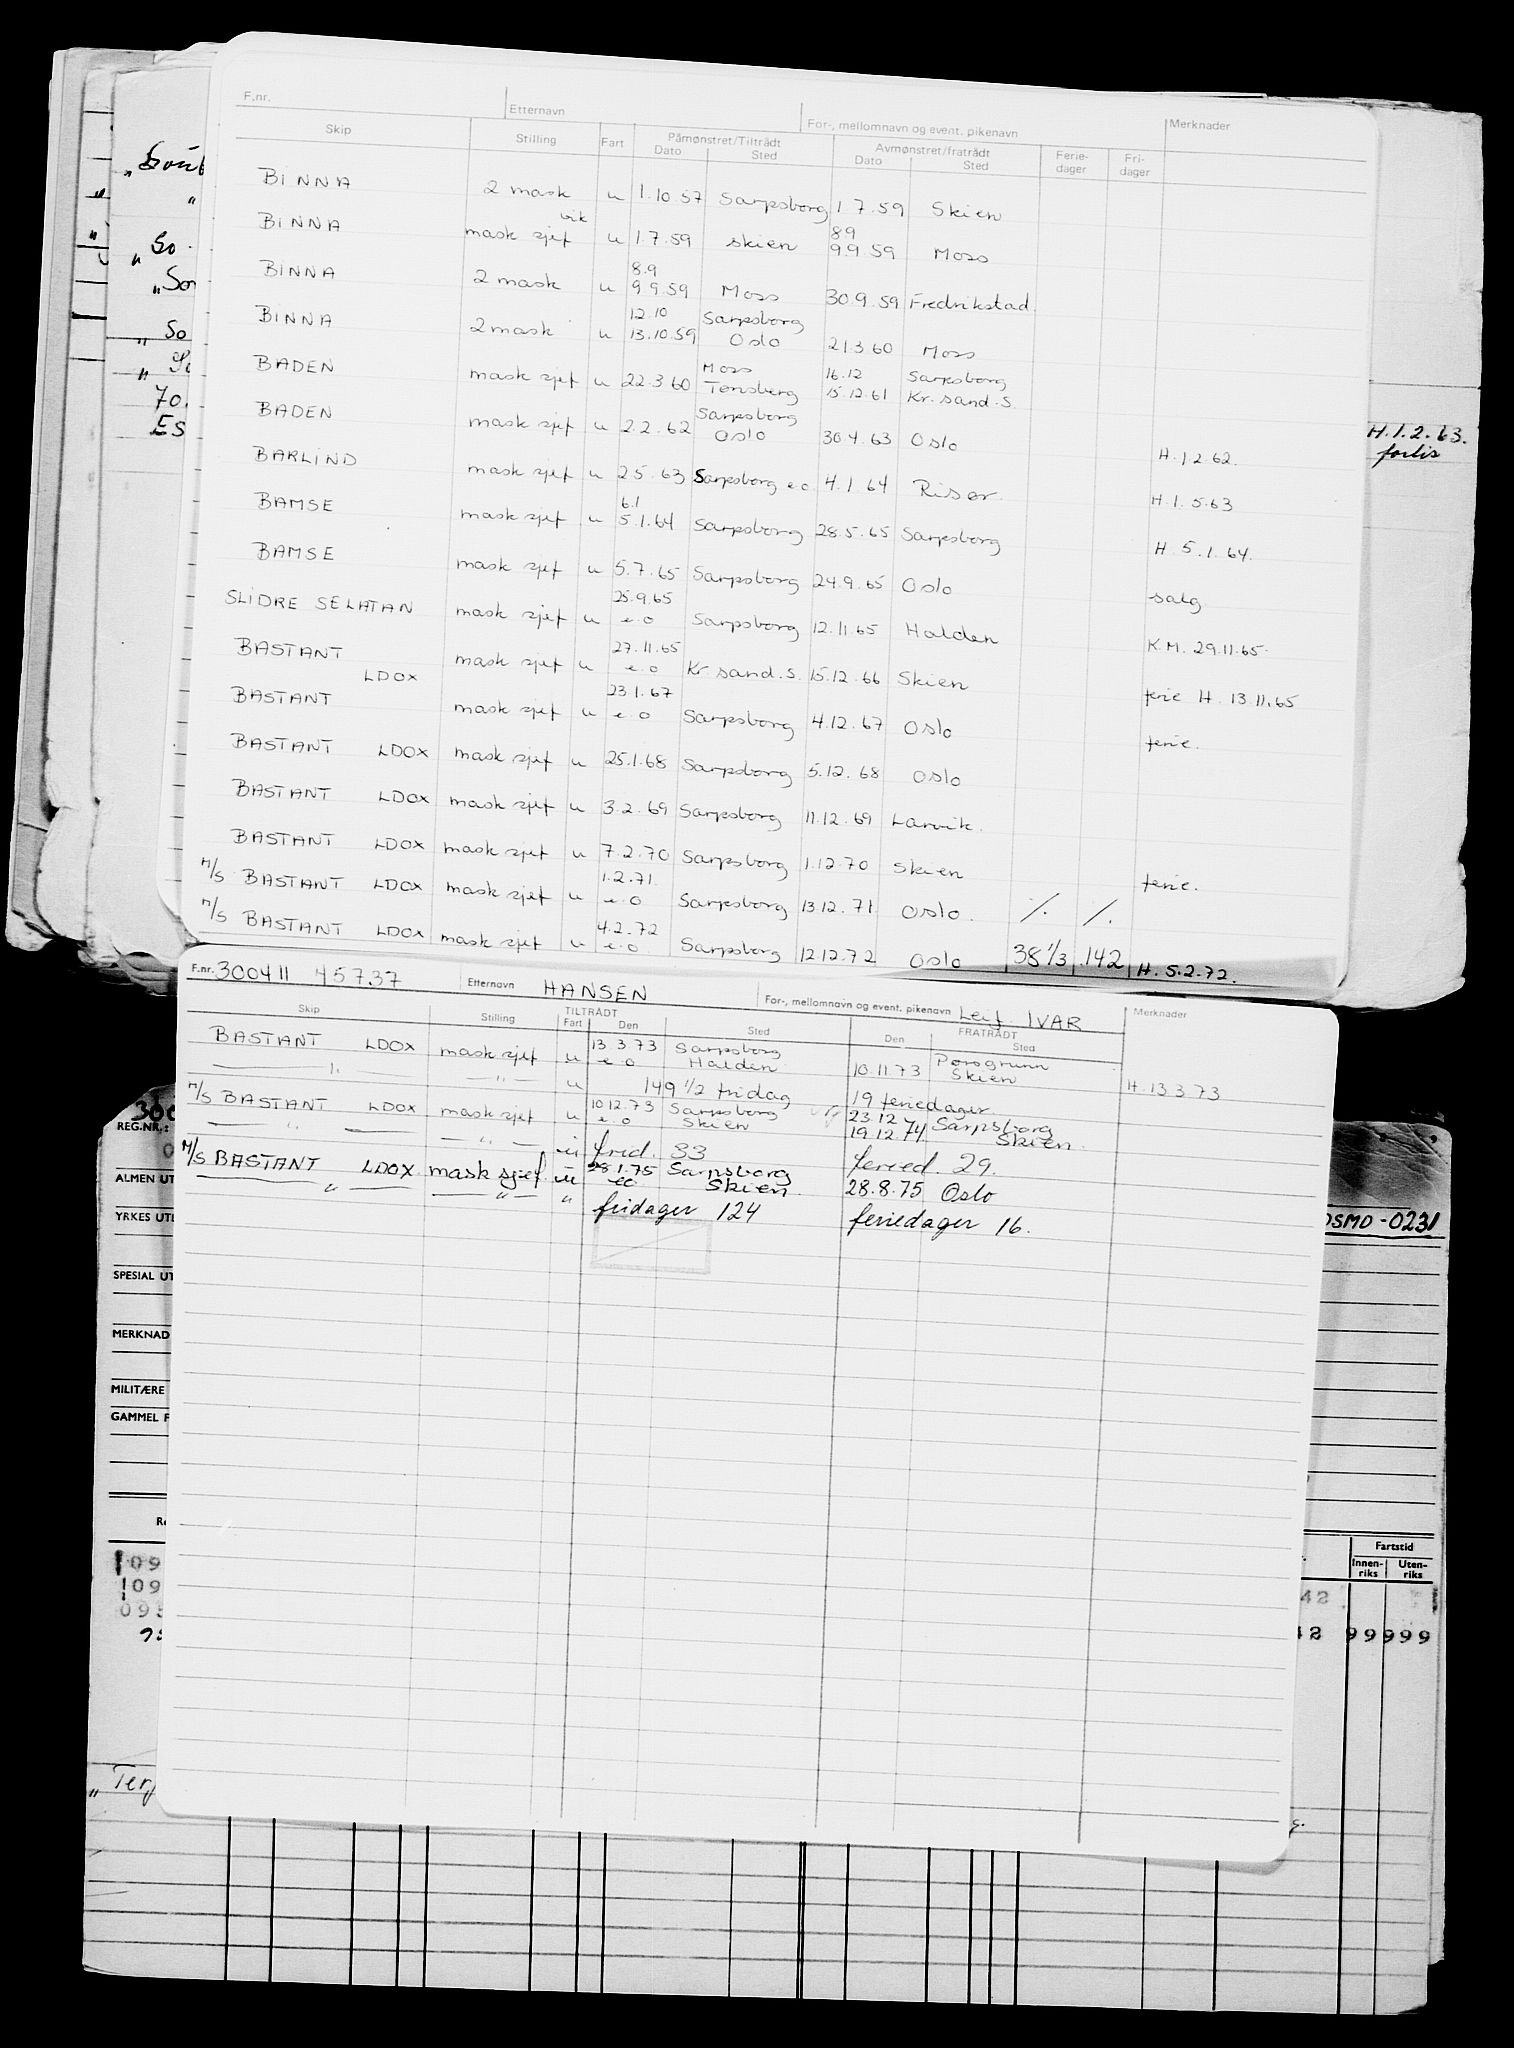 F.nr. Etternavn For-, mellomnavn og event. pikenavn Merknader
Skip Stilling Fart Påmønstret/Tiltrådt Avmønstret/fratrådt Ferie-dager Fri-dager
Dato Sted Dato Sted
BINNA 2 mask u 1.10.57 Sarpsborg 1.7.59 Skien
vik 89
BINNA mask sjef u 1.7.59 skien 9.9.59 Moss
8.9
BINNA 2 mask u 9.9.59 Moss 30.9.59 Fredrikstad
12.10 Sarpsborg
BINNA 2 mask u 13.10.59 Oslo 21.3.60 Moss
Moss 16.12 Sarpsborg
BADEN mask sjef u 22.3.60 Tønsberg 15.12.61 Kr.sand.S.
Sarpsborg
BADEN mask sjef u 2.2.62 Oslo 30.4.63 Oslo H.1.2.62.
BARLIND mask sjef u 2.5.63 Sarpsborg e.o 4.1.64 Risør H.1.5.63
6.1
BAMSE mask sjef u 5.1.64 Sarpsborg 28.5.65 Sarpsborg H.5.1.64.
BAMSE mask sjef u 5.7.65 Sarpsborg 24.9.65 Oslo salg
25.9.65
SLIDRE SELATAN mask sjef u e.o Sarpsborg 12.11.65 Halden K.M. 29.11.65.
27.11.65
BASTANT mask sjef u e.o Kr.sand.S. 15.12.66 Skien ferie H. 13.11.65
LDOX 23.1.67
BASTANT mask sjef u e.o Sarpsborg 4.12.67 Oslo ferie.
BASTANT LDOX mask sjef u 25.1.68 Sarpsborg 5.12.68 Oslo
BASTANT LDOX mask sjef u 3.2.69 Sarpsborg 11.12.69 Larvik.
BASTANT LDOX mask sjef u 7.2.70 Sarpsborg 1.12.70 Skien ferie.
1.2.71.
M/S BASTANT LDOX mask sjef u e.o Sarpsborg 13.12.71 Oslo. ·/. ·/.
4.2.72
M/S BASTANT LDOX mask sjef u e.o Sarpsborg 12.12.72 Oslo 38 1/3 142 H.5.2.72.
F.nr. 300411 45737 Etternavn HANSEN For-, mellomnavn og event. pikenavn Leif IVAR Merknader
Skip Stilling TILTRÅDT FRATRÅDT
Fart Den Sted Den Sted
BASTANT LDOX mask sjef u 13.3.73 Sarpsborg Porsgrunn
e.o Halden 10.11.73 Skien H.13.3.73
" " u 149 1/2 fridag 19 feriedager
M/S BASTANT LDOX mask sjef u 10.12.73 Sarpsborg 23.12 Sarpsborg
e.o Skien 19.12.74 Skien.
" " u frid. 33 feried. 29.
M/S BASTANT LDOX mask sjef u 28.1.75 Sarpsborg
eo Skien 28.8.75 Oslo
" " " fridager 124 feriedager 16.
H.1.2.63.
forlis
REG.NR.:
ALMEN UT
YRKES UT
SPESIAL UT
MERKNAD
MILITÆRE
GAMMEL F
OSMD-0231
Fartstid
Innen-riks Uten-riks
109
109
42
99999